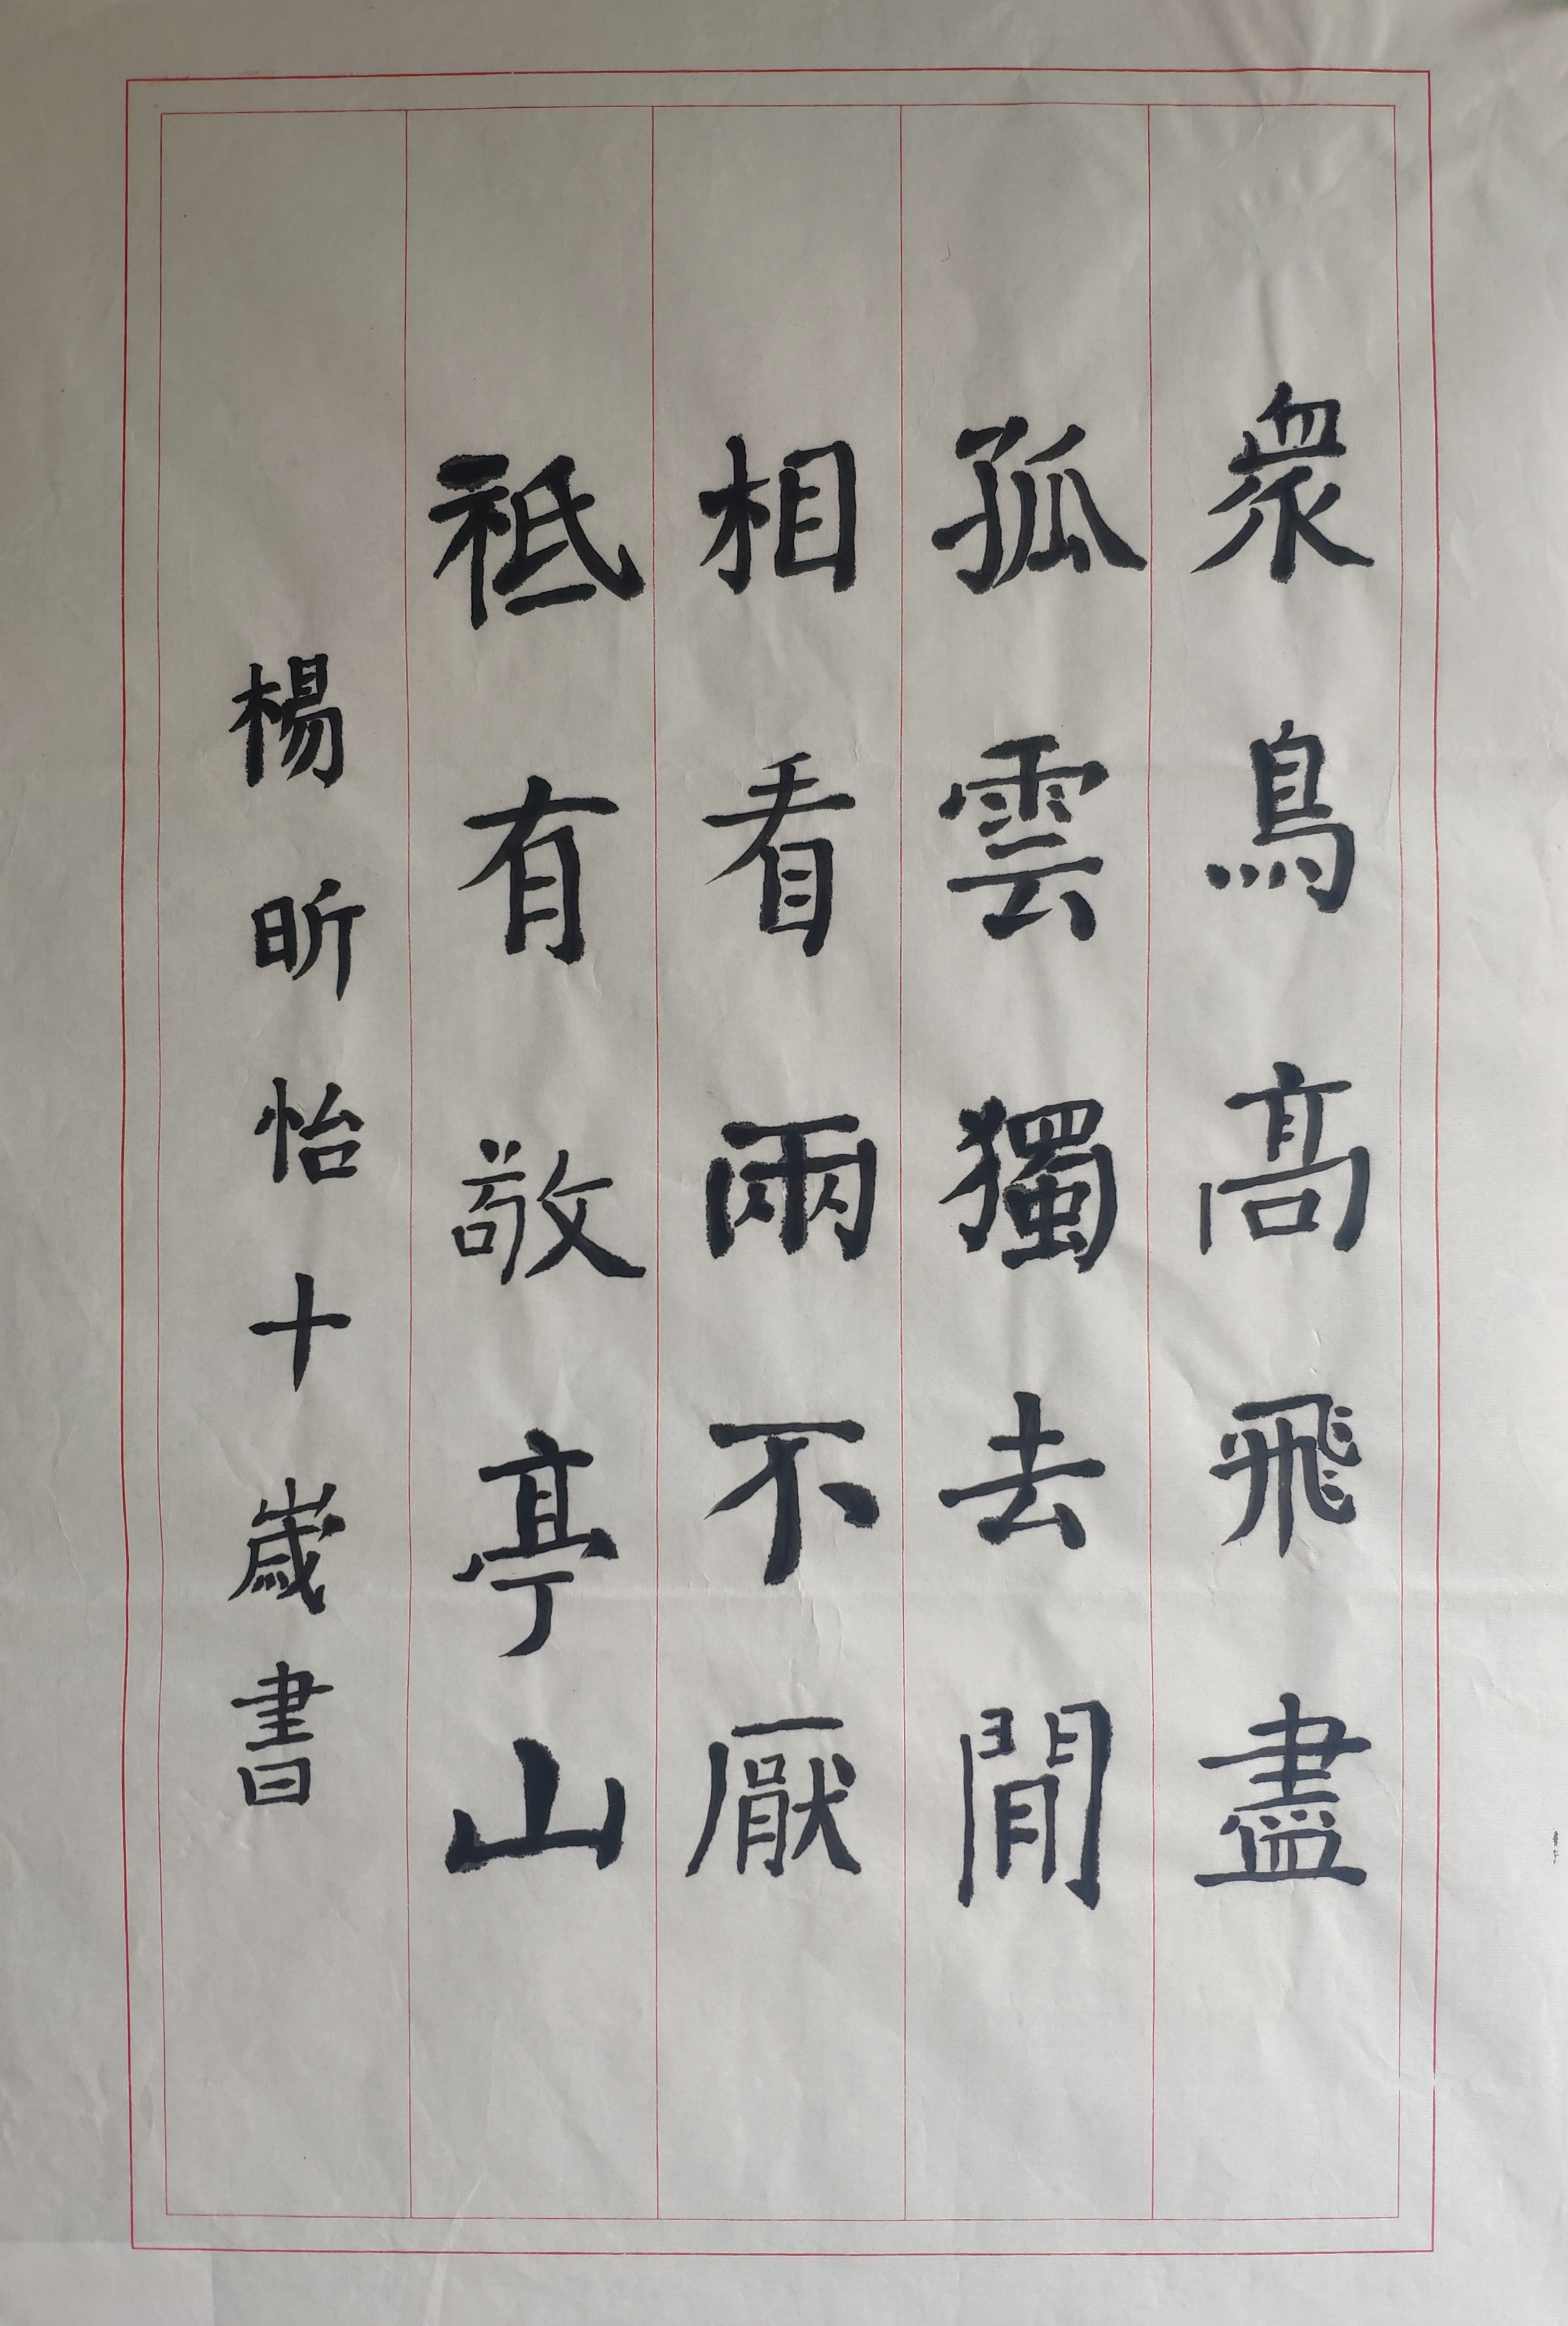 衆鳥高飛盡
孤雲獨去閒
相看兩不厭
祗有敬亭山
楊昕怡十歲書